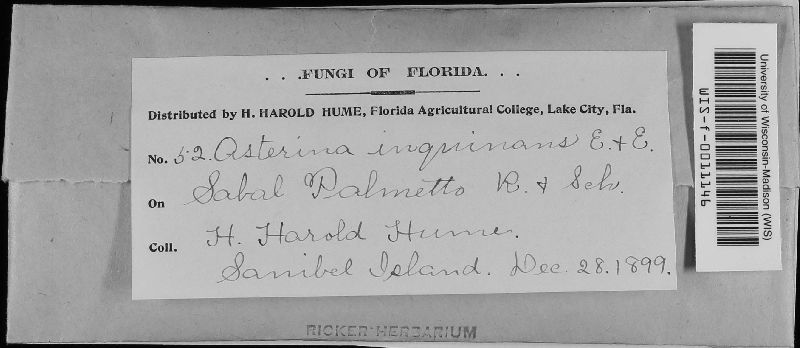 . . .FUNGI OF FLORIDA. . .
Distributed by H. HAROLD HUME, Florida Agricultural College, Lake City, Fla.
No. 52. Asterina inquinans E. & E.
On Sabal Palmetto R. & Sch.
Coll. H. Harold Hume.
Sanibel Island. Dec. 28. 1899.
RICKER HERBARIUM
University of Wisconsin-Madison (WIS)
WIS-f-0011146